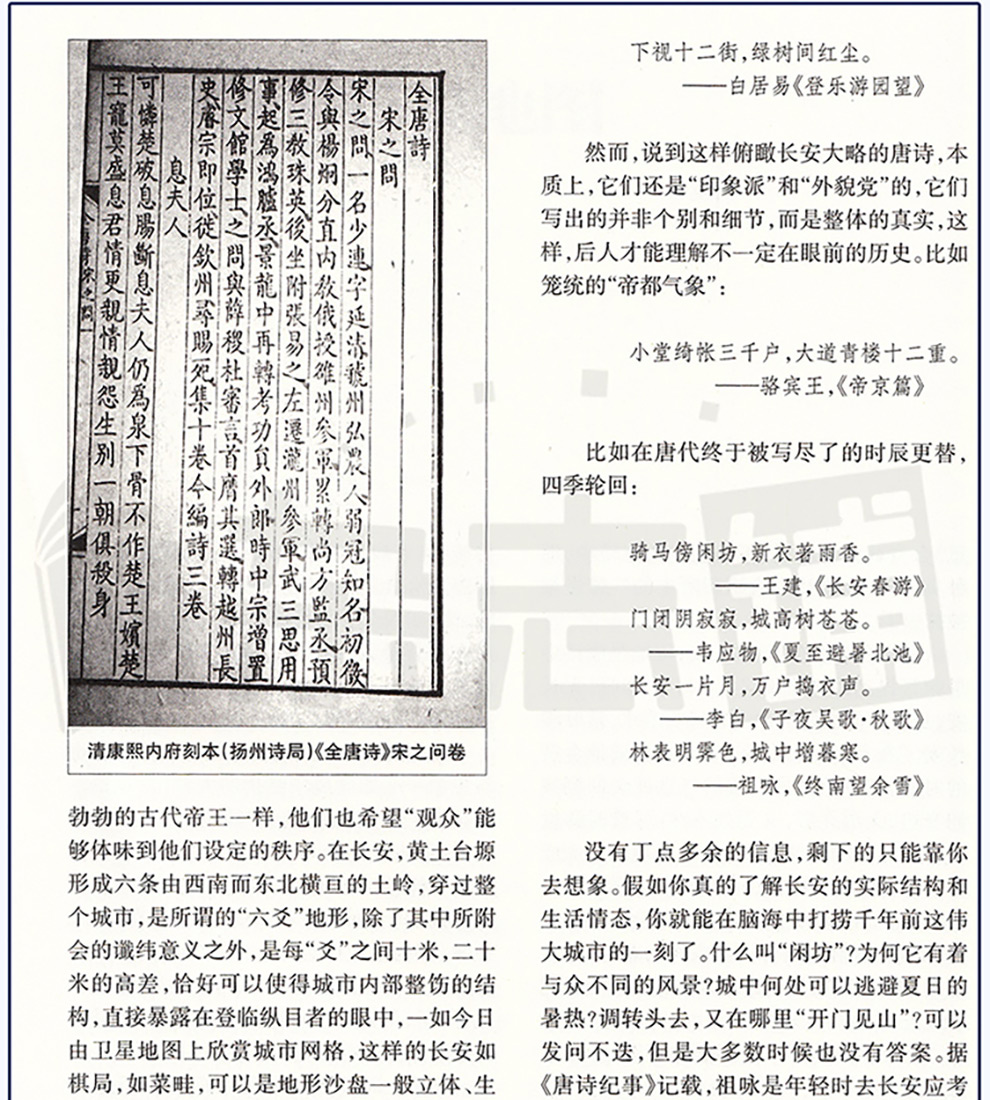 全唐詩
宋之問
宋之問一名少連字延清虢州弘農人弱冠知名初徵
令與楊炯分直内教俄授雒州參軍累轉尚方監丞預
修三教珠英後坐附張易之左遷瀧州參軍武三思用
事起爲鴻臚丞景龍中再轉考功員外郎時中宗增置
修文館學士之問與薛稷杜審言首膺其選轉越州長
史睿宗即位徙欽州尋賜死集十卷今編詩三卷
息夫人
可憐楚破息腸斷息夫人仍爲泉下骨不作楚王嬪楚
王寵莫盛息君情更親情親怨生别一朝俱殺身
清康熙内府刻本(扬州诗局)《全唐诗》宋之问卷
勃勃的古代帝王一样,他们也希望“观众”能
够体味到他们设定的秩序。在长安,黄土台塬
形成六条由西南而东北横亘的土岭,穿过整
个城市,是所谓的“六爻”地形,除了其中所附
会的谶纬意义之外,是每“爻”之间十米,二十
米的高差,恰好可以使得城市内部整饬的结
构,直接暴露在登临纵目者的眼中,一如今日
由卫星地图上欣赏城市网格,这样的长安如
棋局,如菜畦,可以是地形沙盘一般立体、生
下视十二街,绿树间红尘。
——白居易《登乐游园望》
然而,说到这样俯瞰长安大略的唐诗,本
质上,它们还是“印象派”和“外貌党”的,它们
写出的并非个别和细节,而是整体的真实,这
样,后人才能理解不一定在眼前的历史。比如
笼统的“帝都气象”:
小堂绮帐三千户,大道青楼十二重。
——骆宾王,《帝京篇》
比如在唐代终于被写尽了的时辰更替,
四季轮回:
骑马傍闲坊,新衣著雨香。
——王建,《长安春游》
门闭阴寂寂,城高树苍苍。
——韦应物,《夏至避暑北池》
长安一片月,万户捣衣声。
——李白,《子夜吴歌·秋歌》
林表明霁色,城中增暮寒。
——祖咏,《终南望余雪》
没有丁点多余的信息,剩下的只能靠你
去想象。假如你真的了解长安的实际结构和
生活情态,你就能在脑海中打捞千年前这伟
大城市的一刻了。什么叫“闲坊”?为何它有着
与众不同的风景?城中何处可以逃避夏日的
暑热?调转头去,又在哪里“开门见山”?可以
发问不迭,但是大多数时候也没有答案。据
《唐诗纪事》记载,祖咏是年轻时去长安应考